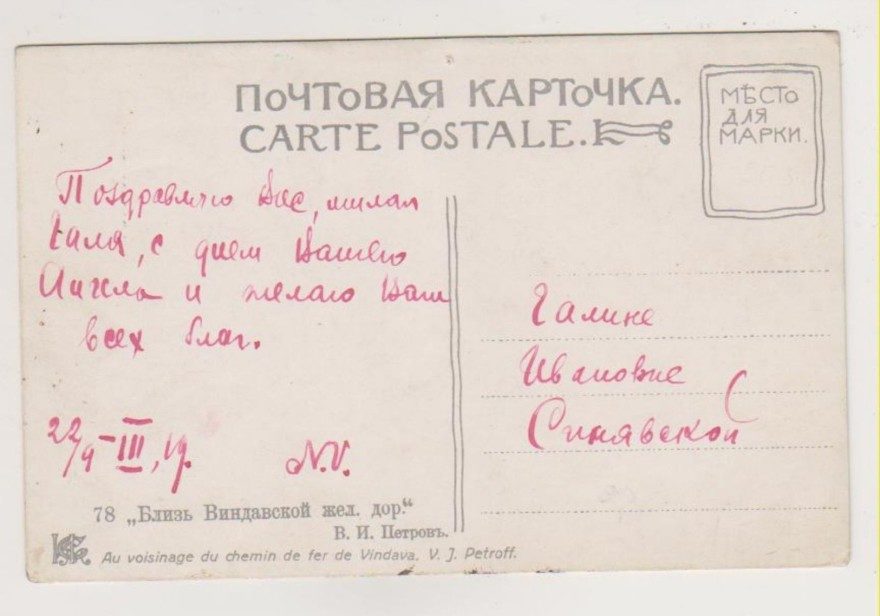 ПОЧТОВАЯ КАРТОЧКА.
CARTE POSTALE.
МѢСТО
ДЛЯ
МАРКИ.
Поздравляю Вас, милая
Галя, с днем Вашего
Ангела и желаю Вам
всех благ.
22/9-III, 19.
N.V.
Галине
Ивановне
Синявской
78 „Близь Виндавской жел. дор.“
В. И. Петровъ.
Au voisinage du chemin de fer de Vindava, V. J. Petroff.